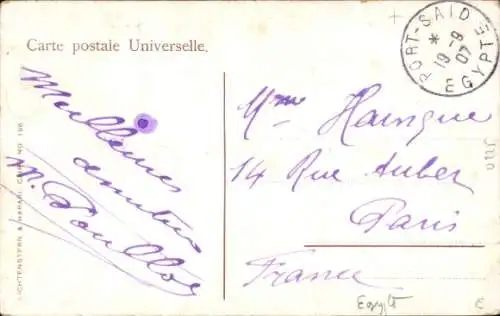 Carte postale Universelle.
PORT-SAID
*
19-9
07
EGYPTE
Meilleures
amitiés
LICHTENSTERN & HARARI, CAIRO NO. 196
Mme Haingue
14 Rue Auber
Paris
France
Egypte